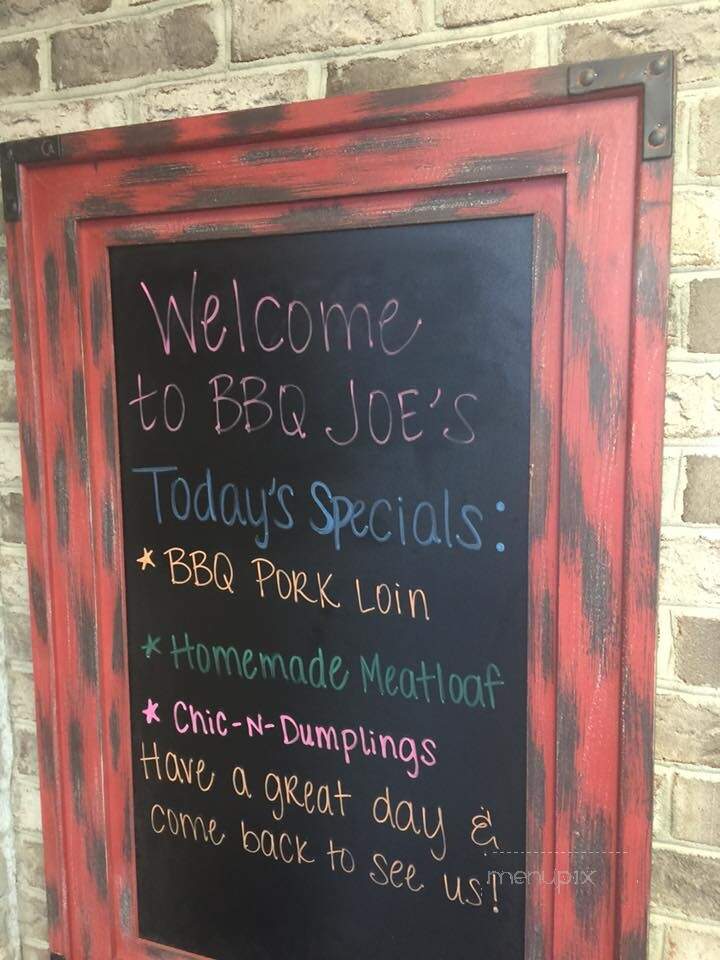 Welcome
to BBQ JOE'S
Today's Specials:
* BBQ PORK Loin
* Homemade Meatloaf
* Chic-N-Dumplings
Have a great day &
come back to see us!
menupix